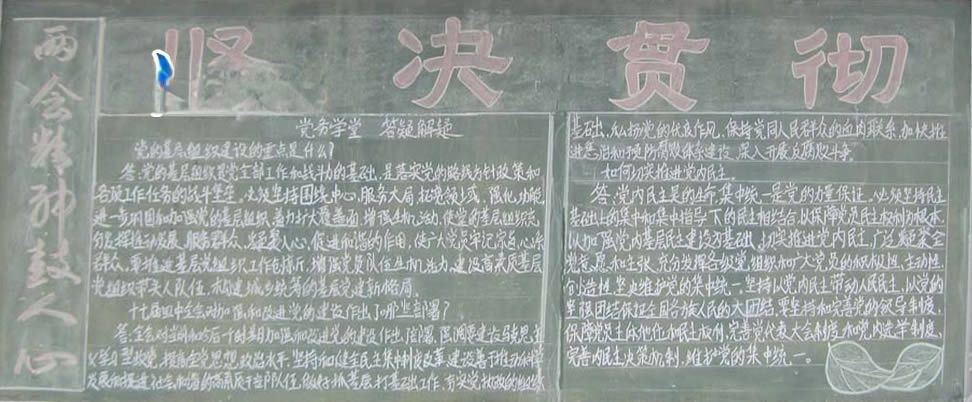 两会精神鼓人心
坚决贯彻
党务学堂 答疑解疑
党的基层组织建设的重点是什么?
答:党的基层组织是党全部工作和战斗力的基础,是落实党的路线方针政策和
各项工作任务的战斗堡垒。必须坚持围绕中心,服务大局,拓宽领域,强化功能,
进一步巩固和加强党的基层组织,着力扩大覆盖面,增强生机活力,使党的基层组织充
分发挥推动发展、服务群众、凝聚人心、促进和谐的作用,使广大党员牢记宗旨心系
群众。要推进基层党组织工作创新,增强党员队伍生机活力,建设高素质基层
党组织带头人队伍,构建城乡统筹的基层党建新格局。
十七届四中全会对加强和改进党的建设作出了哪些部署?
答:全会对当前和今后一个时期加强和改进党的建设作出部署,强调要建设马克思主
义学习型政党,提高全党思想政治水平,坚持和健全民主集中制
发展和促进社会和谐的高素质干部队伍,做好抓基层打基础工作,夯实党执政的组织
基础,弘扬党的优良作风,保持党同人民群众的血肉联系,加快推
进惩治和预防腐败体系建设,深入开展反腐败斗争。
如何切实推进党内民主。
答:党内民主是党的生命,集中统一是党的力量保证。必须坚持民主
基础上的集中和集中指导下的民主相结合,以保障党员民主权利为根本,
以加强党内基层民主建设为基础,切实推进党内民主,广泛凝聚全
党意愿和主张,充分发挥各级党组织和广大党员的积极性、主动性、
创造性,坚决维护党的集中统一。坚持以党内民主带动人民民主,以党的
坚强团结保证全国各族人民的大团结。要坚持和完善党的领导制度,
保障党员主体地位和民主权利,完善党代表大会制度和党内选举制度,
完善党内民主决策机制,维护党的集中统一。